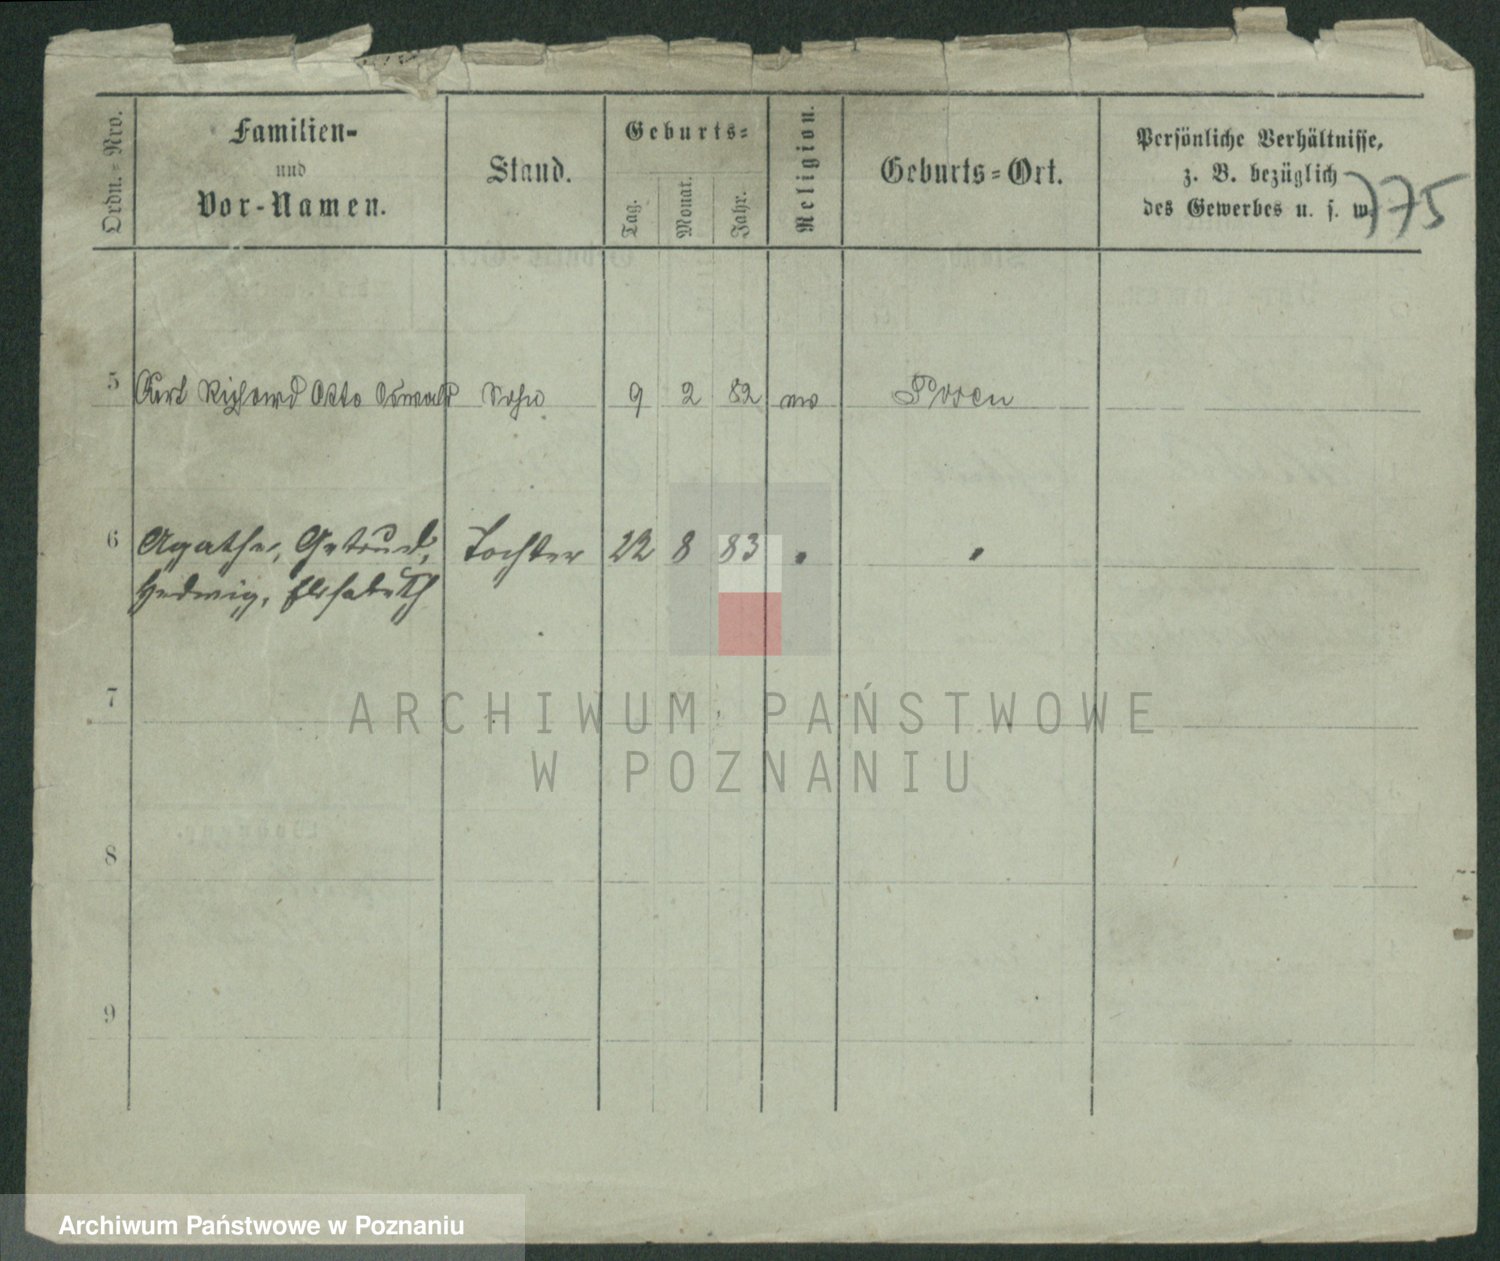 Ordn.-Nro.
Familien-
und
Vor-Namen.
Stand.
Geburts-
Tag.
Monat.
Jahr.
Religion.
Geburts-Ort.
Persönliche Verhältnisse,
z. B. bezüglich
des Gewerbes u. s. w.
775
5 Kurt Richard Otto Oswald Sohn 9 2 82 ev Posen
6 Agathe, Getrud, Tochter 22 8 83 " "
Hedwig, Elisabeth
7
ARCHIWUM PAŃSTWOWE
W POZNANIU
8
9
Archiwum Państwowe w Poznaniu